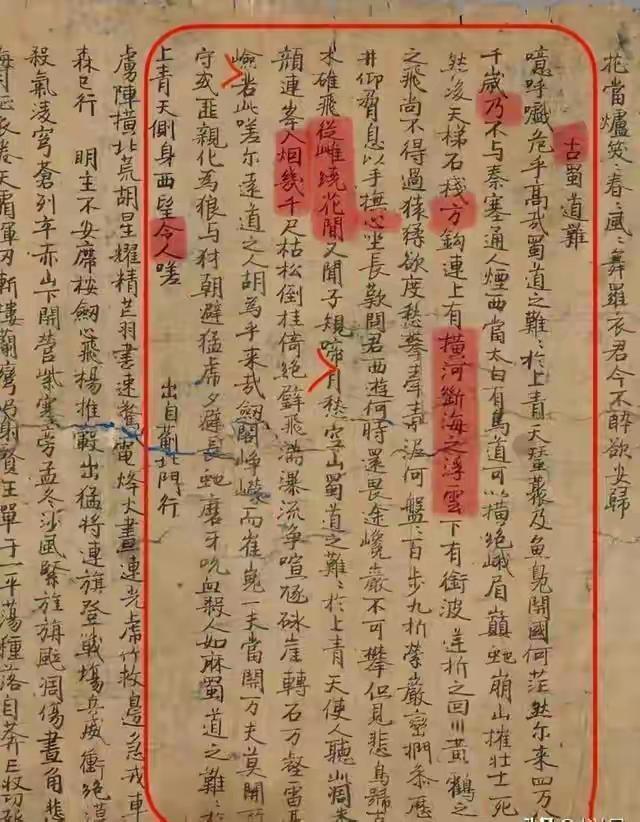 花當爐笑春〻風〻舞羅衣君今不醉欲安歸
古蜀道難
噫呼嚱危乎高哉蜀道之難〻於上青天蠶叢及魚鳧開國何茫然尔来四万
千歲乃不与秦塞通人煙西當太白有鳥道可以橫絕峨眉巔地崩山摧壯士死
然後天梯石棧方鈎連上有橫河斷海之浮雲下有衝波逆折之回川黃鶴之
之飛尚不得過猿猱欲度愁攀牽青泥何盤〻百步九折縈巖巒捫参歷
井仰脅息以手撫心坐長歎問君西遊何時還畏途巉巖不可攀但見悲鳥號古
木雄飛從雌繞花間又聞子規啼月愁空山蜀道之難〻於上青天使人聽此凋朱
顏連峯入烟幾千尺枯松倒挂倚絕壁飛湍瀑流爭喧豗砯崖轉石万壑雷其
嶮若此嗟尔遠道之人胡為乎来哉劒閣崢嶸而崔嵬一夫當開万夫莫開所
守或匪親化為狼与豺朝避猛虎夕避長虵磨牙吮血殺人如麻蜀道之難〻於
上青天側身西望令人嗟
出自薊北門行
虜陣橫北荒胡星耀精芒羽書速驚電烽火晝連光虎竹救邊急戎車
森已行 明主不安席按劒心飛揚推轂出猛將連旗登戰場兵威衝絕漠
殺氣凌穹蒼列卒赤山下開營紫塞旁孟冬沙風緊旌旗颯凋傷畫角悲
海月征衣卷天霜揮刃斬樓蘭彎弓射賢王單于一平蕩種落自奔亡收功